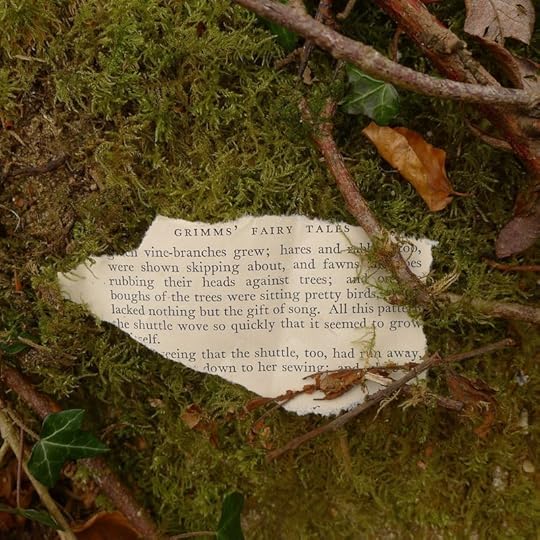 GRIMMS' FAIRY TALES
vine-branches grew; hares and
were shown skipping about, and fawns
rubbing their heads against trees; and
boughs of the trees were sitting pretty birds,
lacked nothing but the gift of song. All this
the shuttle wove so quickly that it seemed to grow
self.
seeing that the shuttle, too, had run away,
down to her sewing;